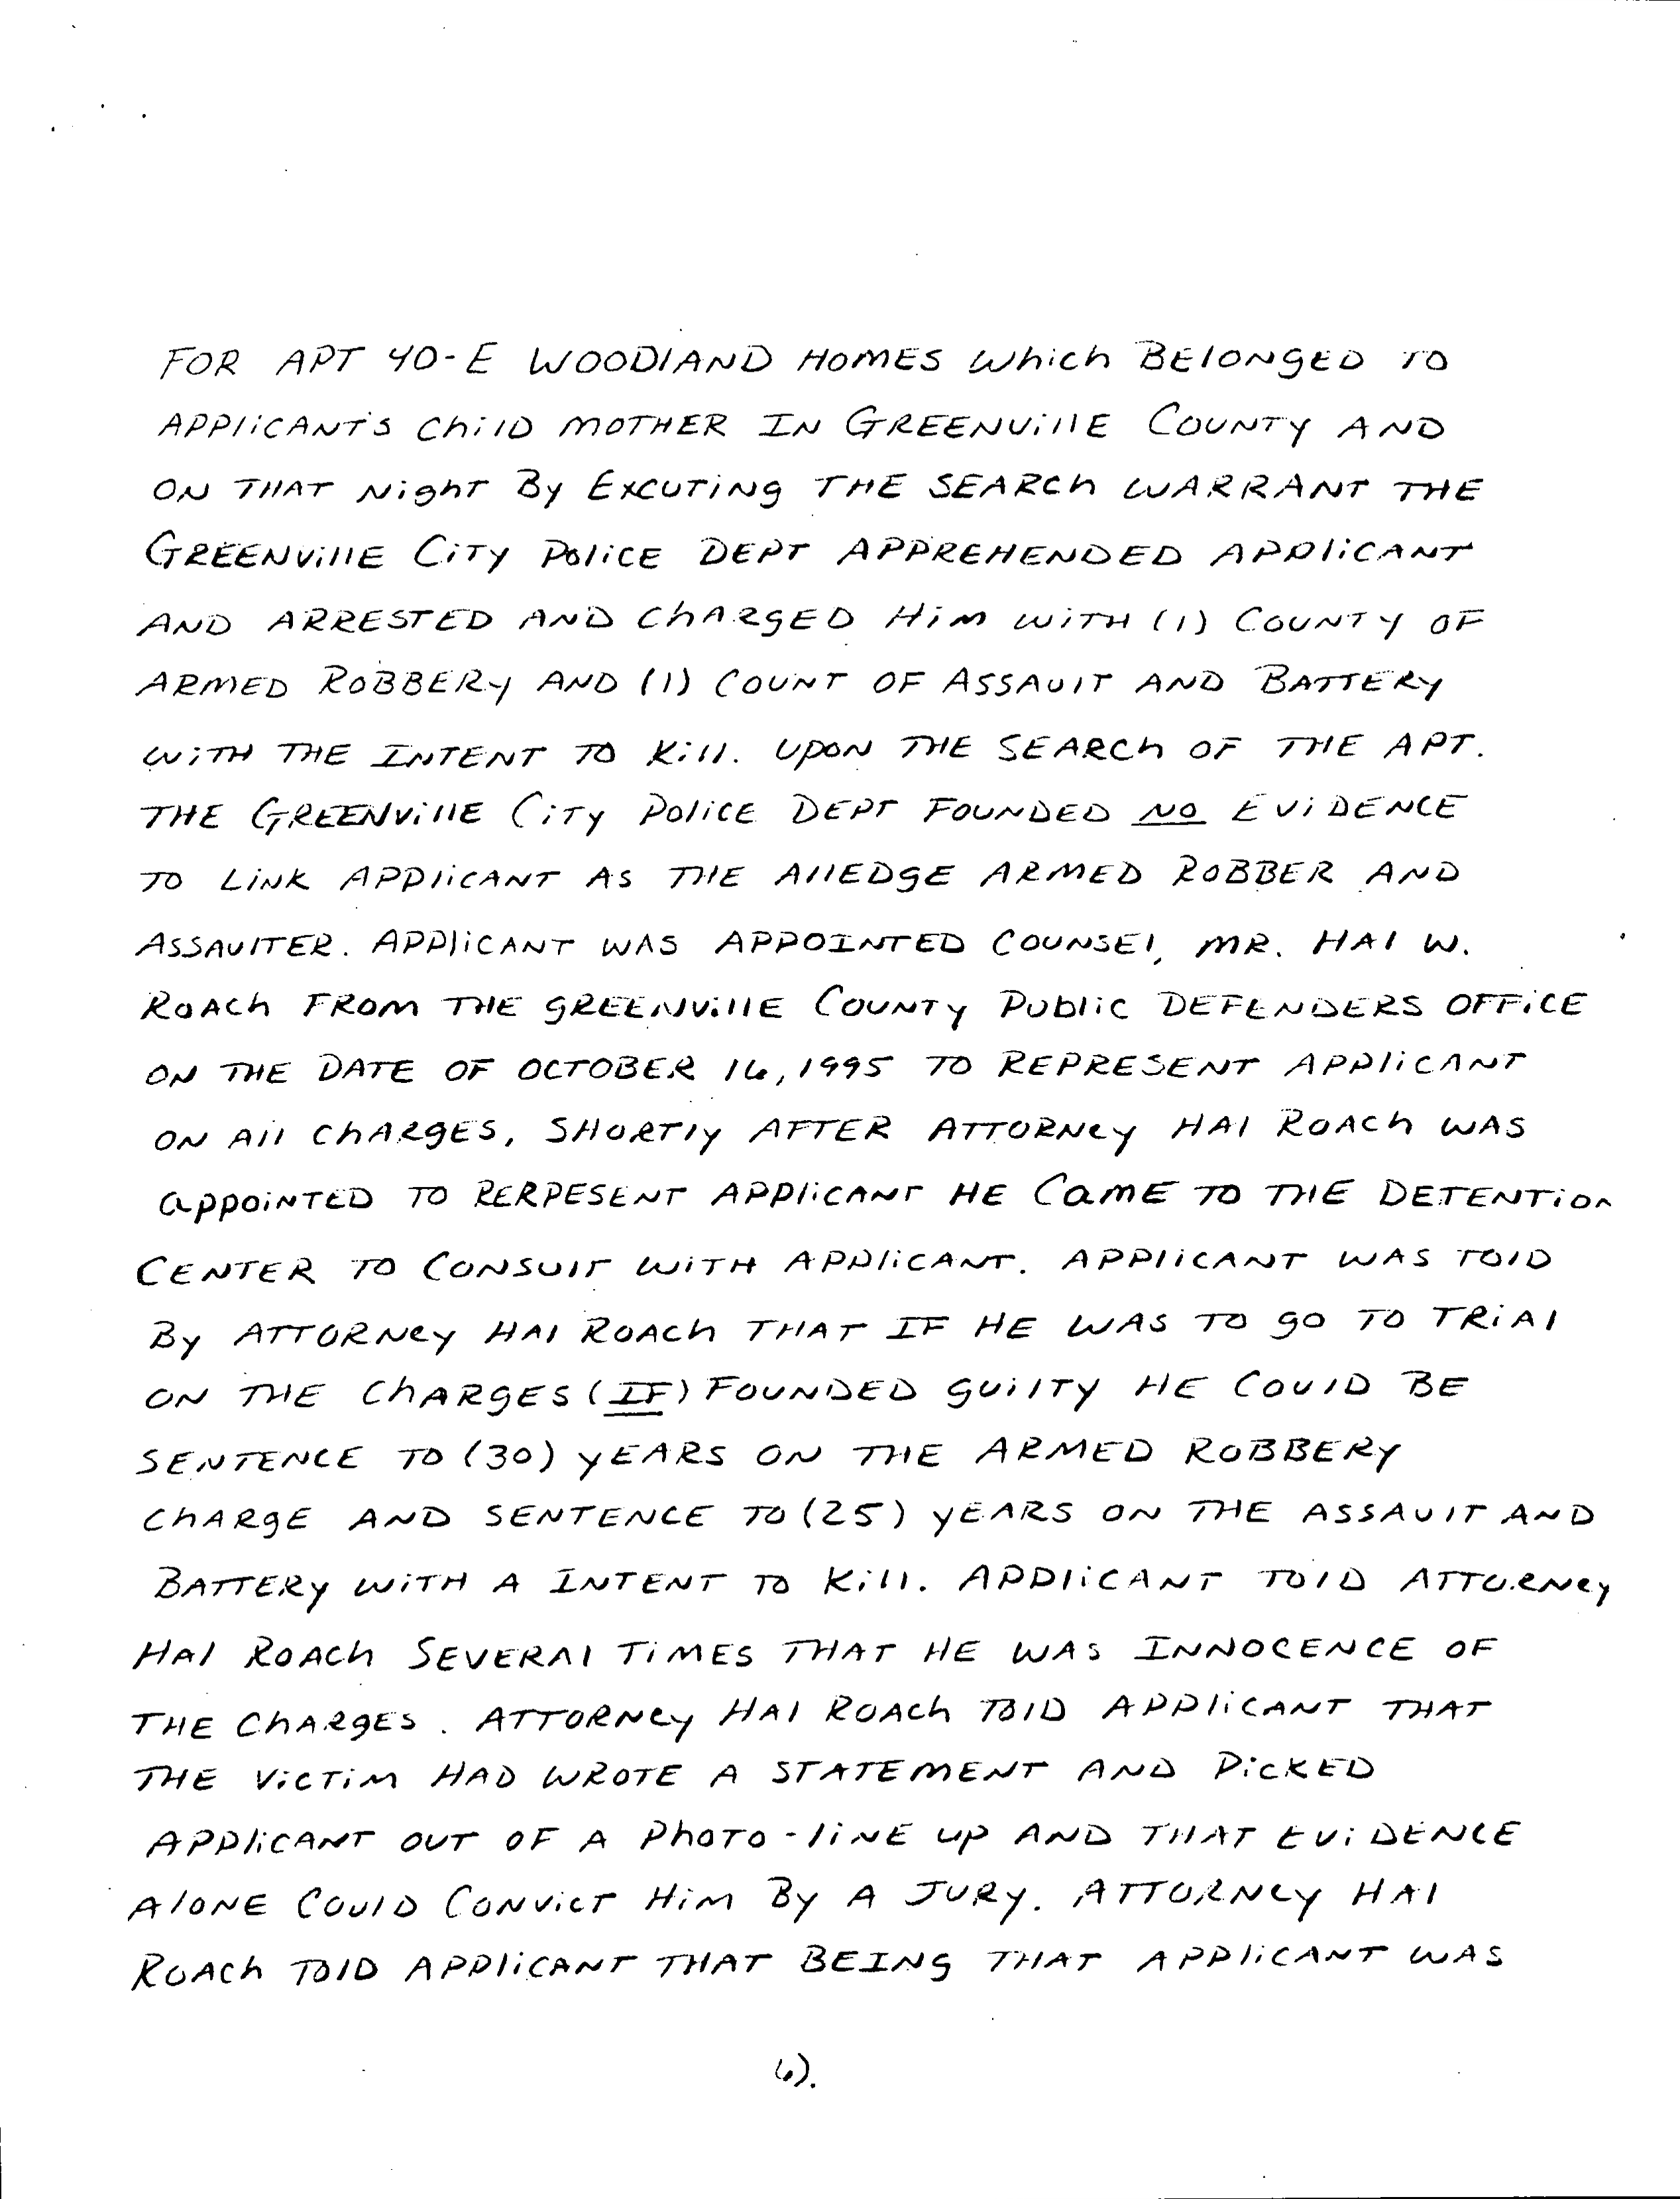 FOR APT 40-E WOODLAND HOMES which BELONGED TO
APPLICANT'S Child MOTHER IN GREENVILLE COUNTY AND
ON THAT Night By EXCUTING THE SEARCH WARRANT THE
GREENVILLE CITY POLICE DEPT APPREHENDED APPLICANT
AND ARRESTED AND CHARGED HIM WITH (1) COUNTY OF
ARMED ROBBERY AND (1) COUNT OF ASSAULT AND BATTERY
WITH THE INTENT TO KILL. UPON THE SEARCH OF THE APT.
THE GREENVILLE CITY POLICE DEPT FOUNDED NO EVIDENCE
TO LINK APPLICANT AS THE ALLEDGE ARMED ROBBER AND
ASSAULTER. APPLICANT WAS APPOINTED COUNSEL, MR. HAL W.
ROACH FROM THE GREENVILLE COUNTY PUBLIC DEFENDERS OFFICE
ON THE DATE OF OCTOBER 16, 1995 TO REPRESENT APPLICANT
ON ALL CHARGES, SHORTLY AFTER ATTORNEY HAL ROACH WAS
APPOINTED TO RERPESENT APPLICANT HE CAME TO THE DETENTION
CENTER TO CONSULT WITH APPLICANT. APPLICANT WAS TOLD
By ATTORNEY HAL ROACH THAT IF HE WAS TO GO TO TRIAL
ON THE CHARGES (IF) FOUNDED GUILTY HE COULD BE
SENTENCE TO (30) YEARS ON THE ARMED ROBBERY
CHARGE AND SENTENCE TO (25) YEARS ON THE ASSAULT AND
BATTERY WITH A INTENT TO KILL. APPLICANT TOLD ATTORNEY
HAL ROACH SEVERAL TIMES THAT HE WAS INNOCENCE OF
THE CHARGES. ATTORNEY HAL ROACH TOLD APPLICANT THAT
THE VICTIM HAD WROTE A STATEMENT AND PICKED
APPLICANT OUT OF A PHOTO-LINE UP AND THAT EVIDENCE
ALONE COULD CONVICT HIM BY A JURY. ATTORNEY HAL
ROACH TOLD APPLICANT THAT BEING THAT APPLICANT WAS
6).